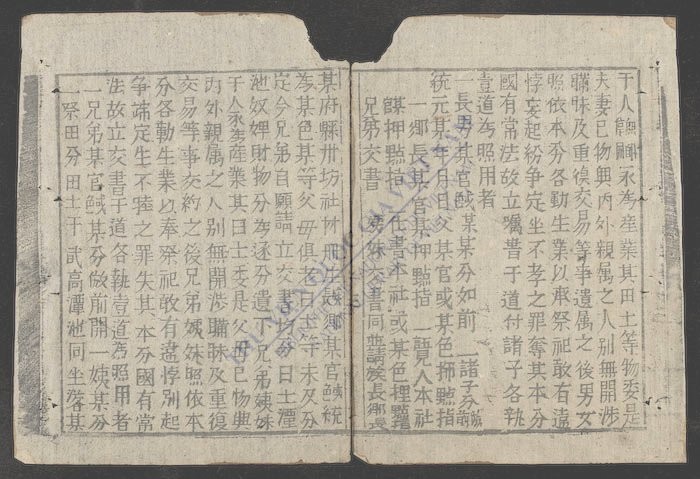 于人詞翻永為産業其田土等物委是
夫妻己物與内外親属之人别無開涉
瞞昧及重復交易等事遺属之後男女
照依本分各勤生業以奉祭祀敢有違
悖妄起紛爭定坐不孝之罪奪其本分
國有常法故立囑書于道付諸子各執
壹道為照用者
一長男某官䤋某某分如前 一諸子分前
統元某年月日父某官或某色押點指
一鄉長某官某押點指 一見人本社
某押點指 一在書本社或某色押點指
兄弟交書 男妹交書同
某府縣卅坊社村 鄉某官䤋
為某色某等父毋俱 日土等未及分
定今兄弟自願請立交書均分田土潭
池奴婢財物分為逐分遺下兄弟姨妹
于人永為産業其田土委是父毋己物與
内外親属之人别無開涉瞞昧及重復
交易等事交約之後兄弟姊妹照依本
分各勤生業以奉祭祀敢有違悖别起
爭端定坐不睦之罪失其本分國有常
法故立交書于道各執壹道為照用者
一兄弟某官䤋某分做前開一姨某分
一祭田分田土于武高潭池同坐落某